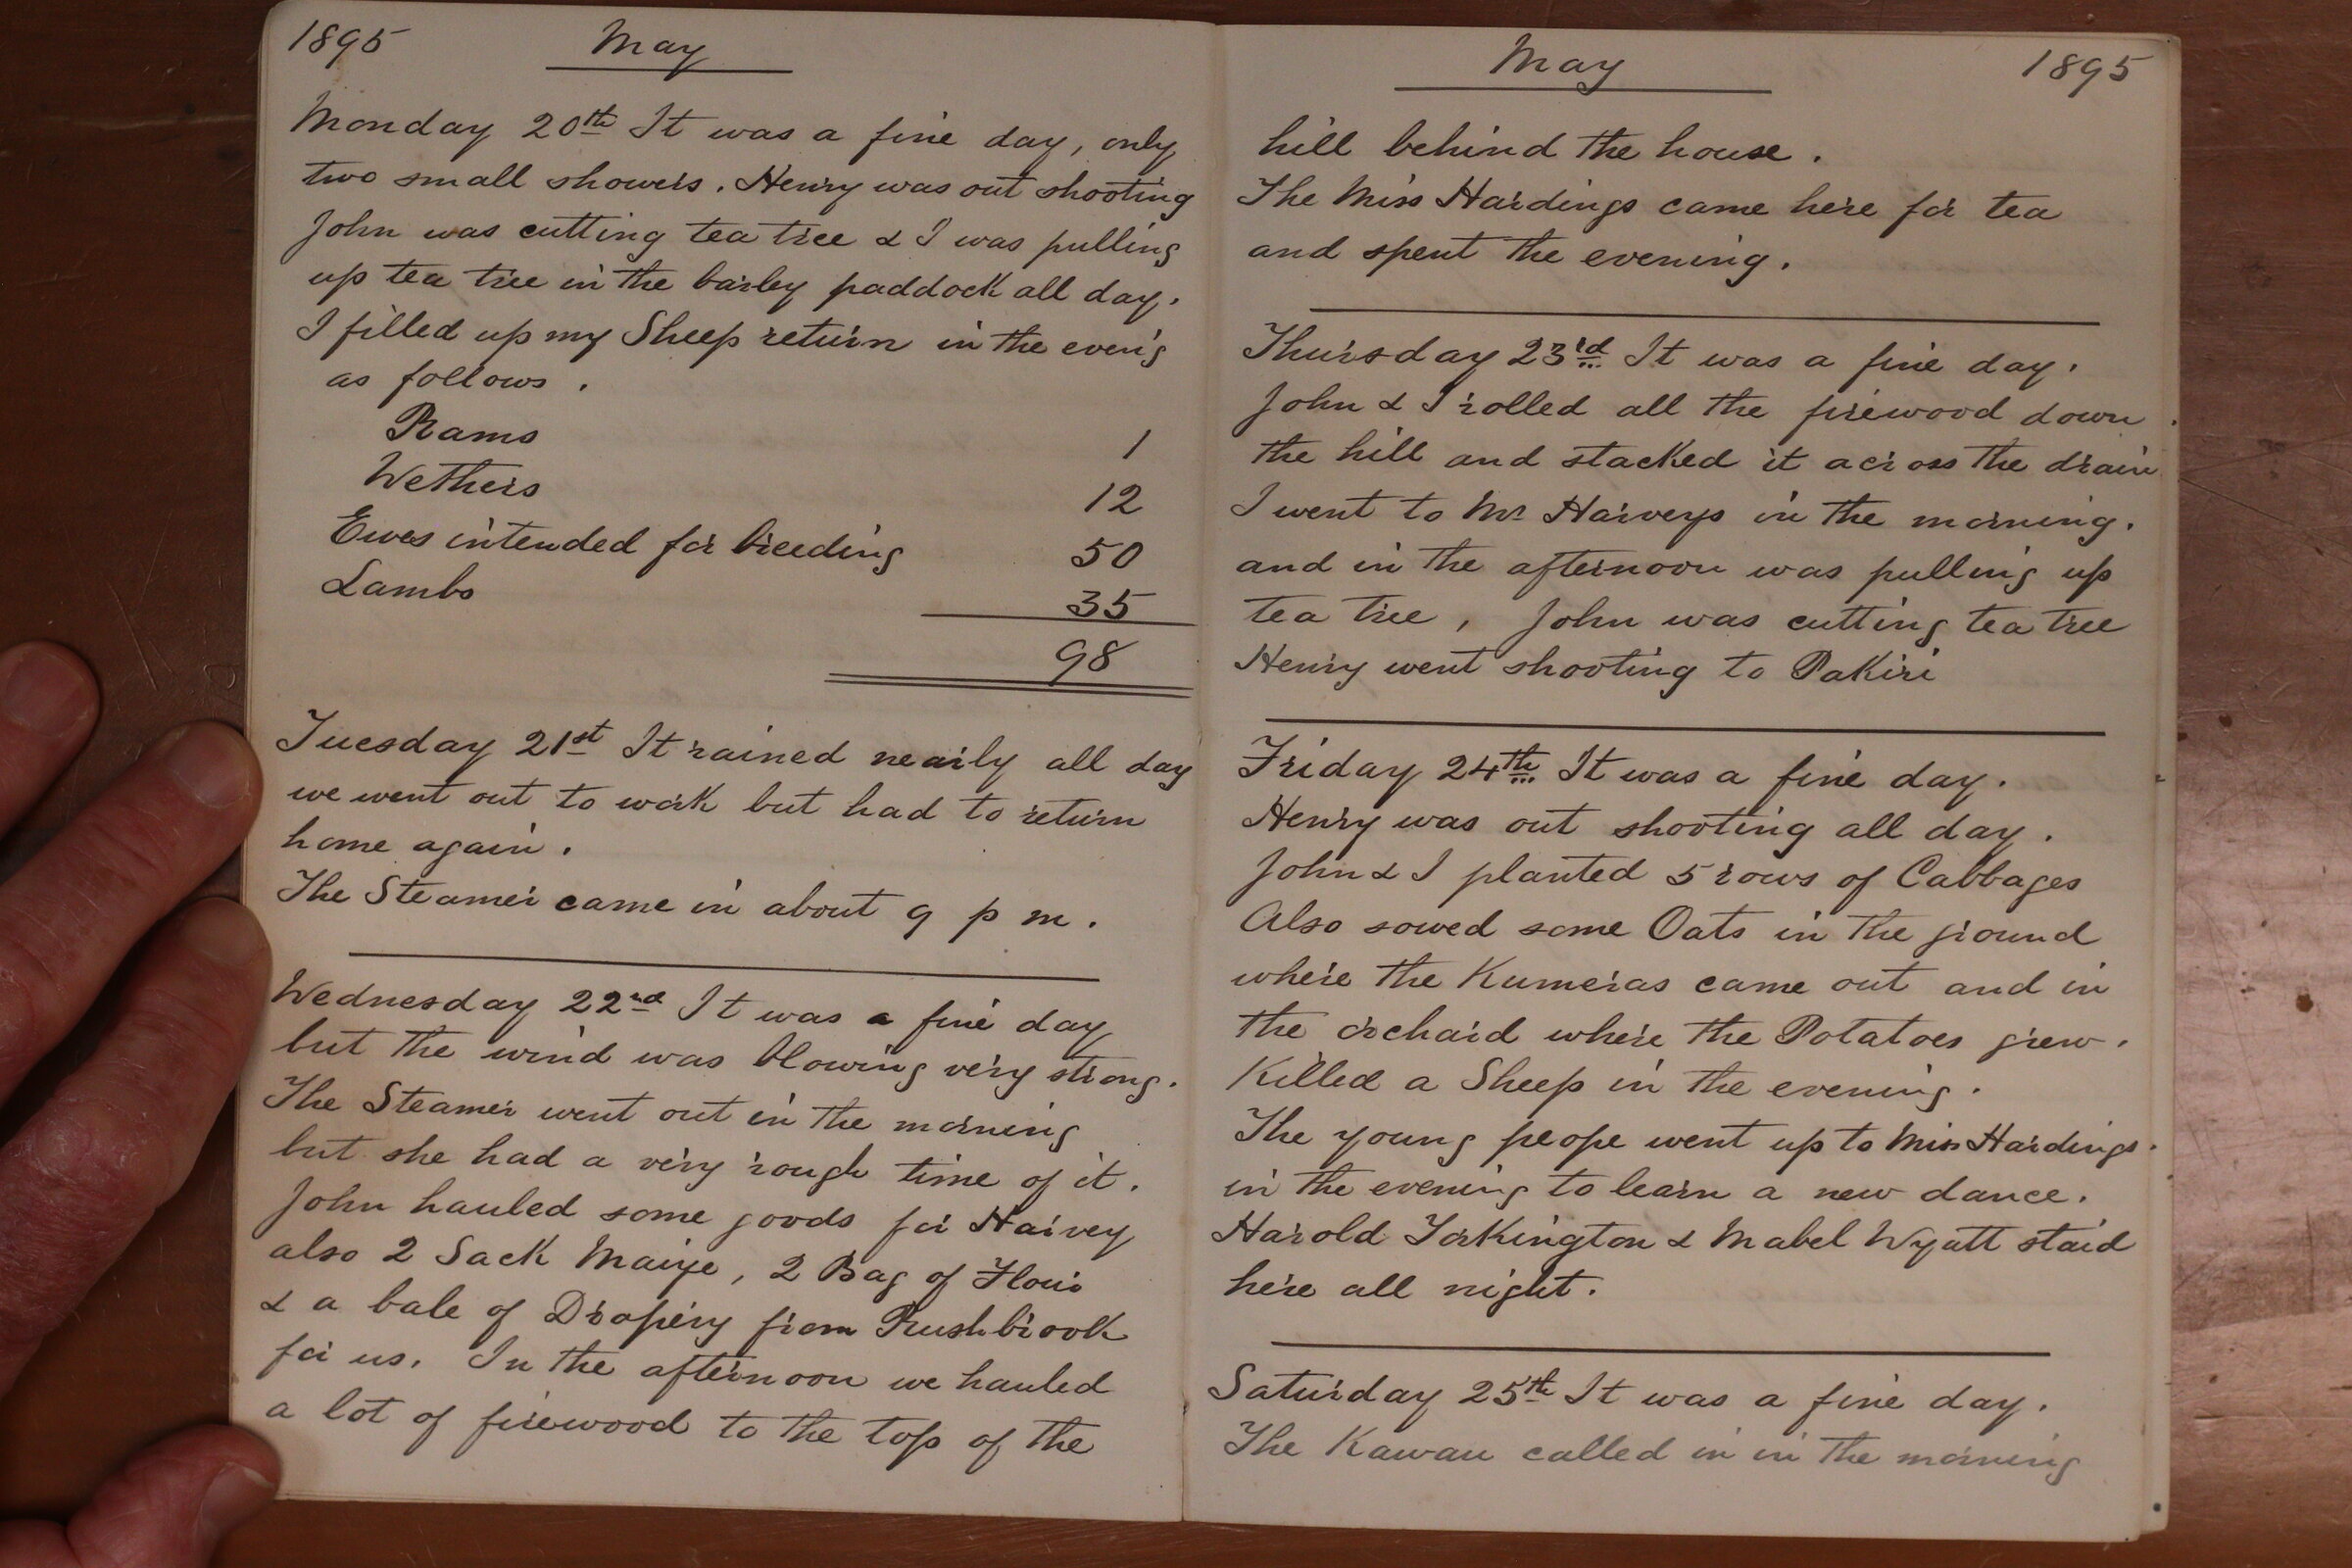 1895 May
Monday 20th It was a fine day, only
two small showers. Henry was out shooting
John was cutting tea tree & I was pulling
up tea tree in the barley paddock all day.
I filled up my Sheep return in the even'g
as follows.
Rams 1
Wethers 12
Ewes intended for breeding 50
Lambs 35
98
Tuesday 21st It rained nearly all day
we went out to work but had to return
home again.
The Steamer came in about 9 p m.
Wednesday 22nd It was a fine day
but the wind was blowing very strong.
The Steamer went out in the morning
but she had a very rough time of it.
John hauled some goods for Harvey
also 2 Sack Maize, 2 Bag of Flour
& a bale of Drapery from Rushbrook
for us. In the afternoon we hauled
a lot of firewood to the top of the
May 1895
hill behind the house.
The Miss Hardings came here for tea
and spent the evening.
Thursday 23rd It was a fine day.
John & I rolled all the firewood down
the hill and stacked it across the drain
I went to Mr Harveys in the morning.
and in the afternoon was pulling up
tea tree, John was cutting tea tree
Henry went shooting to Pakiri
Friday 24th It was a fine day.
Henry was out shooting all day.
John & I planted 5 rows of Cabbages
Also sowed some Oats in the ground
where the Kumeras came out and in
the orchard where the Potatoes grew.
Killed a Sheep in the evening.
The young peope went up to Miss Hardings.
in the evening to learn a new dance.
Harold Torkington & Mabel Wyatt staid
here all night.
Saturday 25th It was a fine day.
The Kawau called in in the morning